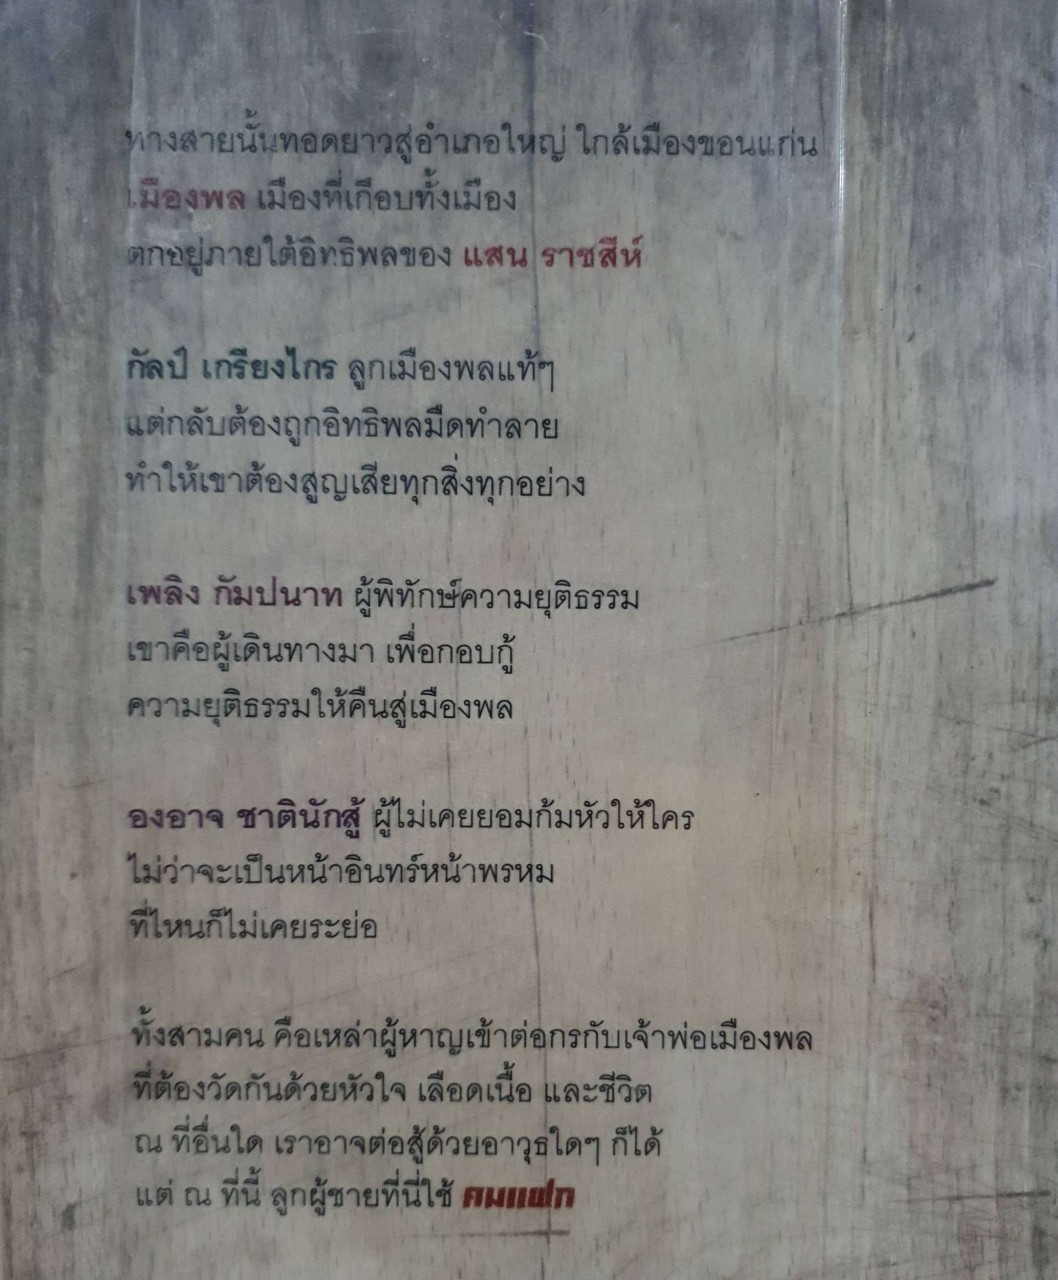 ทางสายนั้นทอดยาวสู่อำเภอใหญ่ ใกล้เมืองขอนแก่น
เมืองพล เมืองที่เกือบทั้งเมือง
ตกอยู่ภายใต้อิทธิพลของ แสน ราชสีห์
กัลป์ เกรียงไกร ลูกเมืองพลแท้ๆ
แต่กลับต้องถูกอิทธิพลมืดทำลาย
ทำให้เขาต้องสูญเสียทุกสิ่งทุกอย่าง
เพลิง กัมปนาท ผู้พิทักษ์ความยุติธรรม
เขาคือผู้เดินทางมา เพื่อกอบกู้
ความยุติธรรมให้คืนสู่เมืองพล
องอาจ ชาตินักสู้ ผู้ไม่เคยยอมก้มหัวให้ใคร
ไม่ว่าจะเป็นหน้าอินทร์หน้าพรหม
ที่ไหนก็ไม่เคยระย่อ
ทั้งสามคน คือเหล่าผู้หาญเข้าต่อกรกับเจ้าพ่อเมืองพล
ที่ต้องวัดกันด้วยหัวใจ เลือดเนื้อ และชีวิต
ณ ที่อื่นใด เราอาจต่อสู้ด้วยอาวุธใดๆ ก็ได้
แต่ ณ ที่นี้ ลูกผู้ชายที่นี่ใช้ คมแฝก